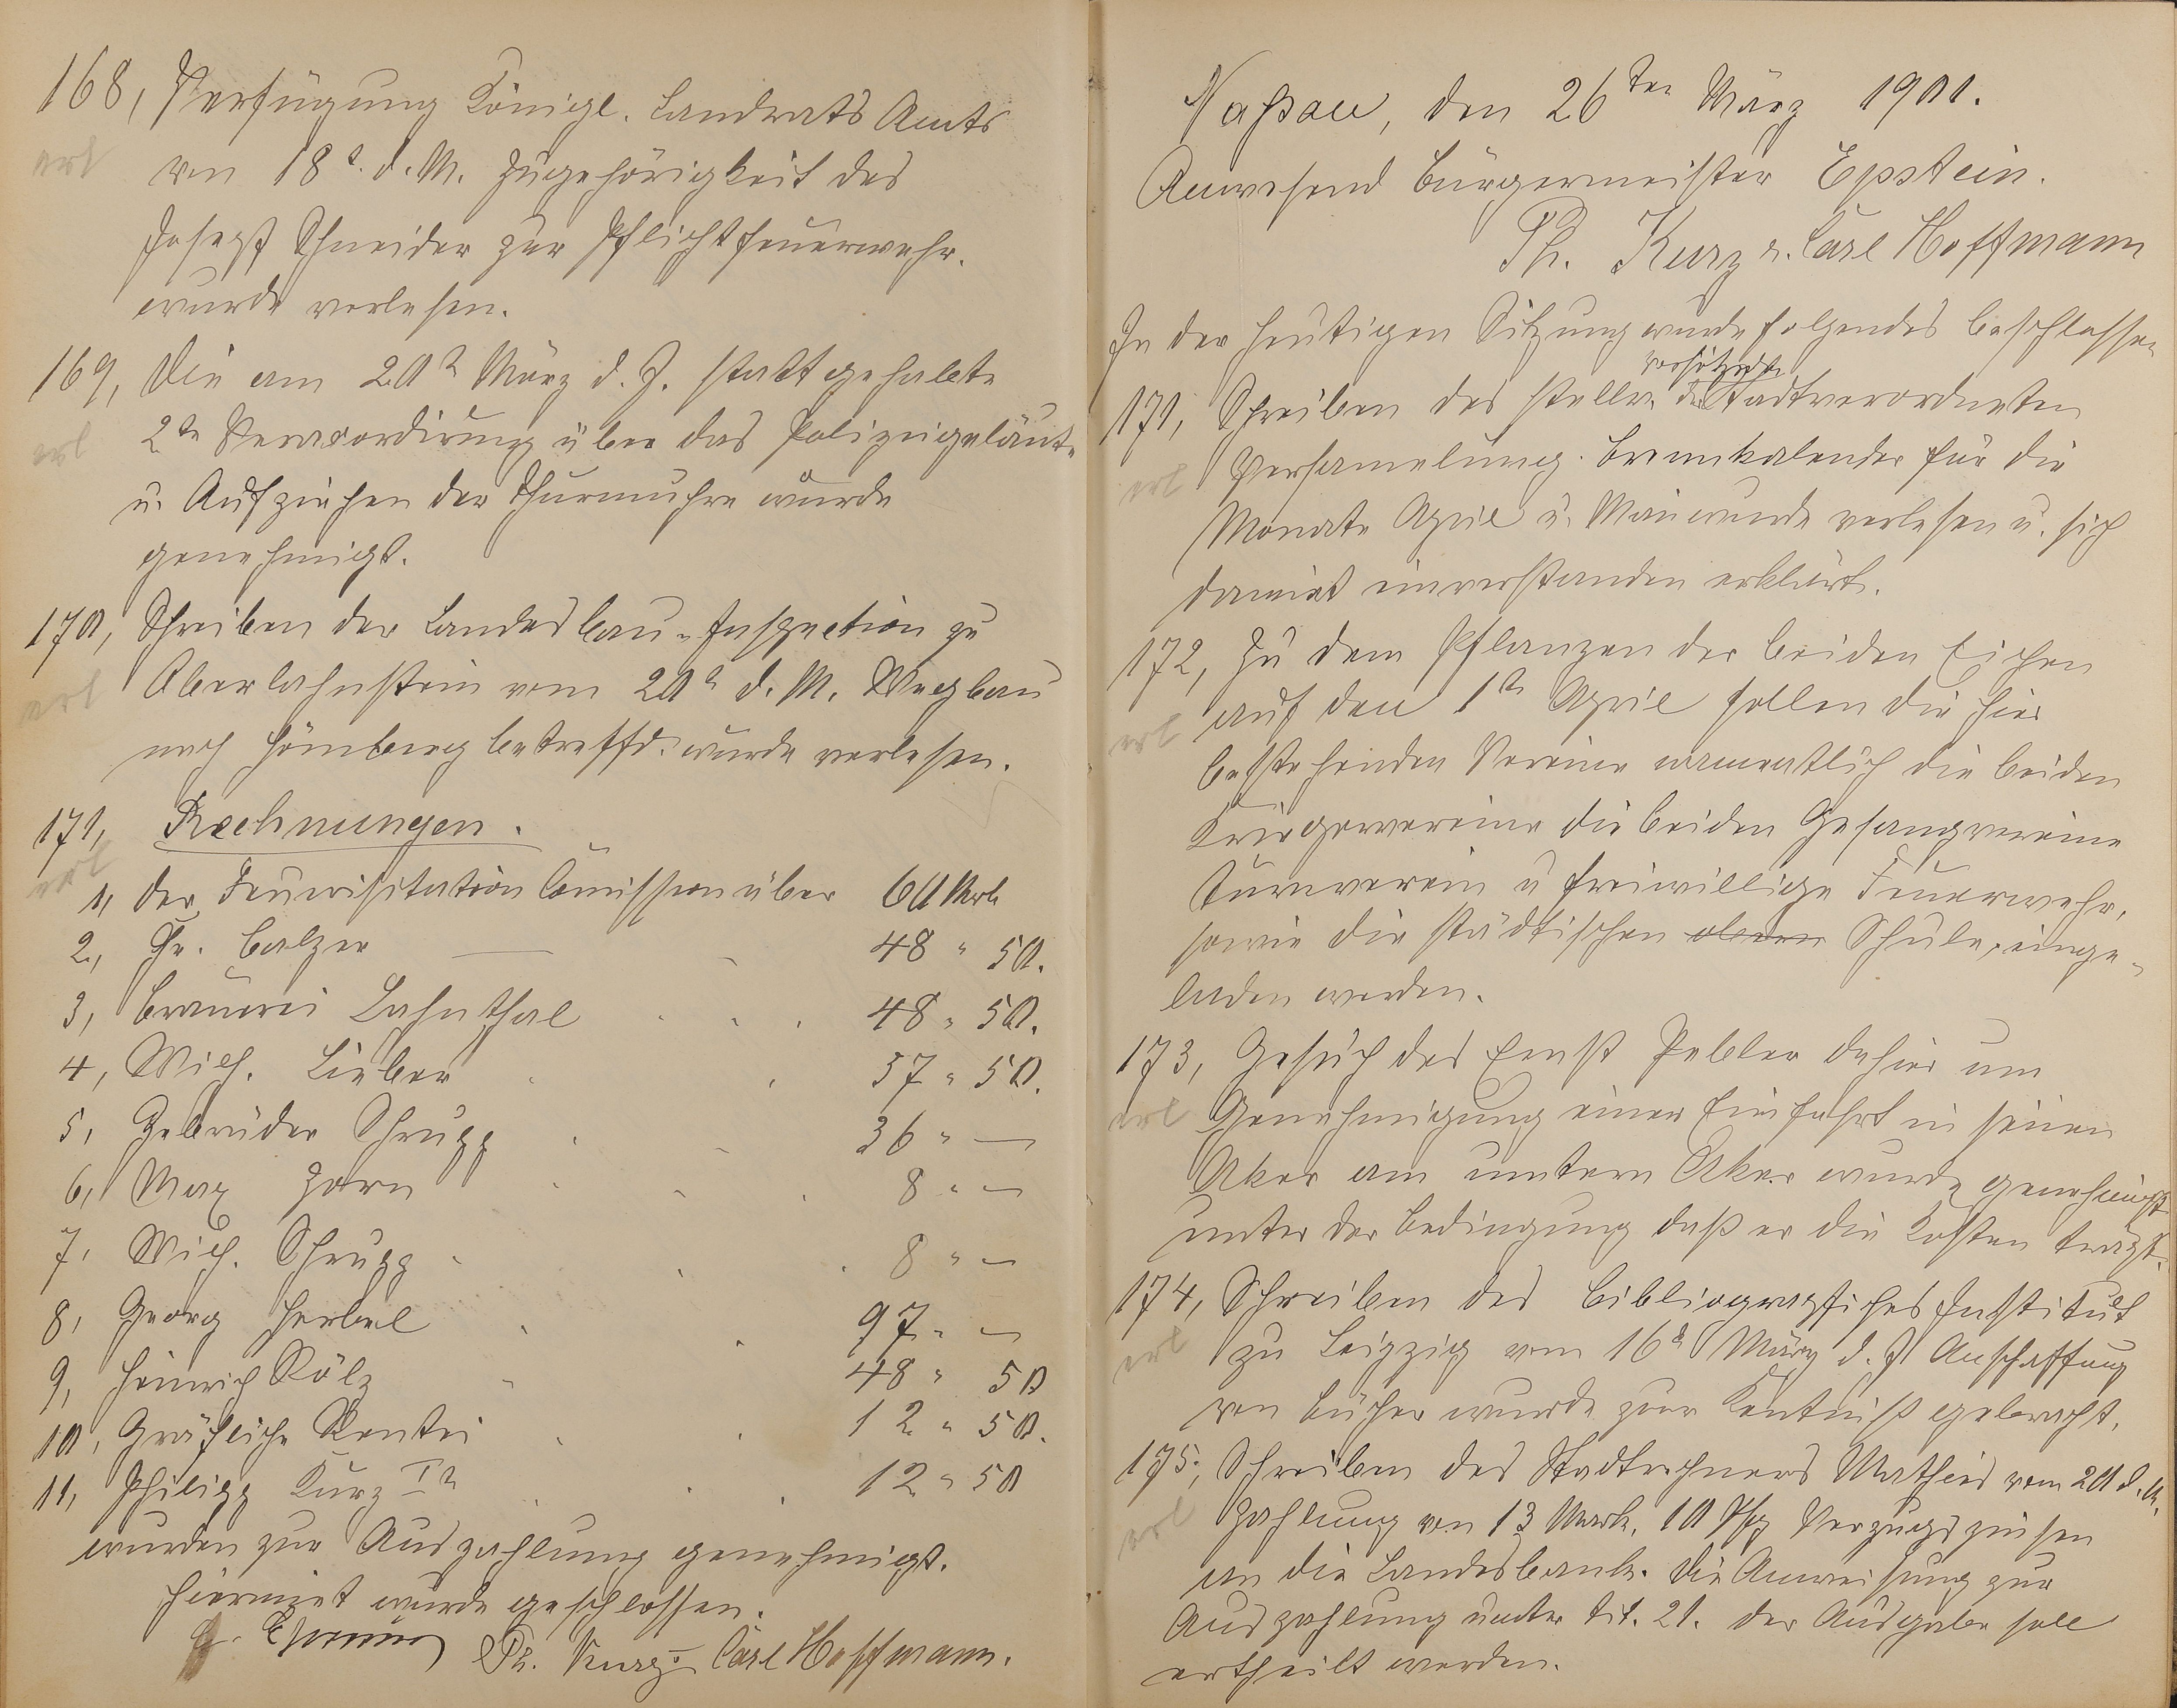 168, Verfügung Königl. Landrats Amts
erl
von 18t. d. M. Zugehörigkeit des
Joseph Schneider zur Pflichtfeuerwehr.
wurde verlesen.
169, Die am 20t März d. J. stattgehabte
erl
2te Veraccordirung über das Polizeigeläute
u. Aufziehen der Thurmuhre wurde
genehmigt.
170, Schreiben der Landesbau-Inspection zu
erl
Oberlahnstein vom 20t d. M. Wegbau
nach Hömberg betreffd. wurde verlesen.
171, Rechnungen.
erl
1, der Feuervisitation Comission über 60 Mark
2, Chr. Balzer — 48 " 50.
3, Brauerei Lahnthal 48 " 50.
4, Wilh. Lieber 37 " 50.
5, Gebrüder Schrupp 36 " —
6, Max Zorn 8 " —
7, Wilh. Schrupp 8 " —
8, Georg Herbel 97 " —
9, Heinrich Kölz 48 " 50
10, Gräfliche Rentei 12 " 50.
11, Philipp Kurz Ir 12 " 50
wurden zur Auszahlung genehmigt.
Hiermit wurde geschlossen.
Ph. Kurz Carl Hoffmann.
Naßau, den 26ten März 1901.
Anwesend Bürgermeister Epstein.
Ph. Kurz u. Carl Hoffmann
In der heutigen Sitzung wurde folgendes beschlossen
vorsitzenden
171, Schreiben des stellv. der Stadtverordneten
erl
Versamelung. Brennkalender für die
Monate April u. Mai wurde verlesen u. sich
damit einverstanden erklärt.
172, Zu dem Pflanzen der beiden Eichen
erl
auf den 1ten April sollen die hier
bestehenden Vereine namentlich die beiden
Kriegervereine die beiden Gesangvereine
Turnverein u freiwillige Feuerwehr,
sowie die städtischen Schule, einge-
laden werden.
173, Gesuch des Ernst Pebler dahier um
erl
Genehmigung einer Einfahrt in seinen
Aker am untern Aker wurde genehmigt
unter der Bedingung daß er die Kosten trägt.
174, Schreiben des Bibliographisches Institut
erl
zu Leipzig vom 16t März d. J Anschaffung
von Bücher wurde zur Kentniß gebracht.
175, Schreiben des Stadtrechners Mathies vom 20 d. M.
erl
Zahlung von 13 Mark, 10 Pfg Verzugszinsen
an die Landesbank. Die Anweisung zur
Auszahlung unter tit. 21. der Ausgabe soll
ertheilt werden.